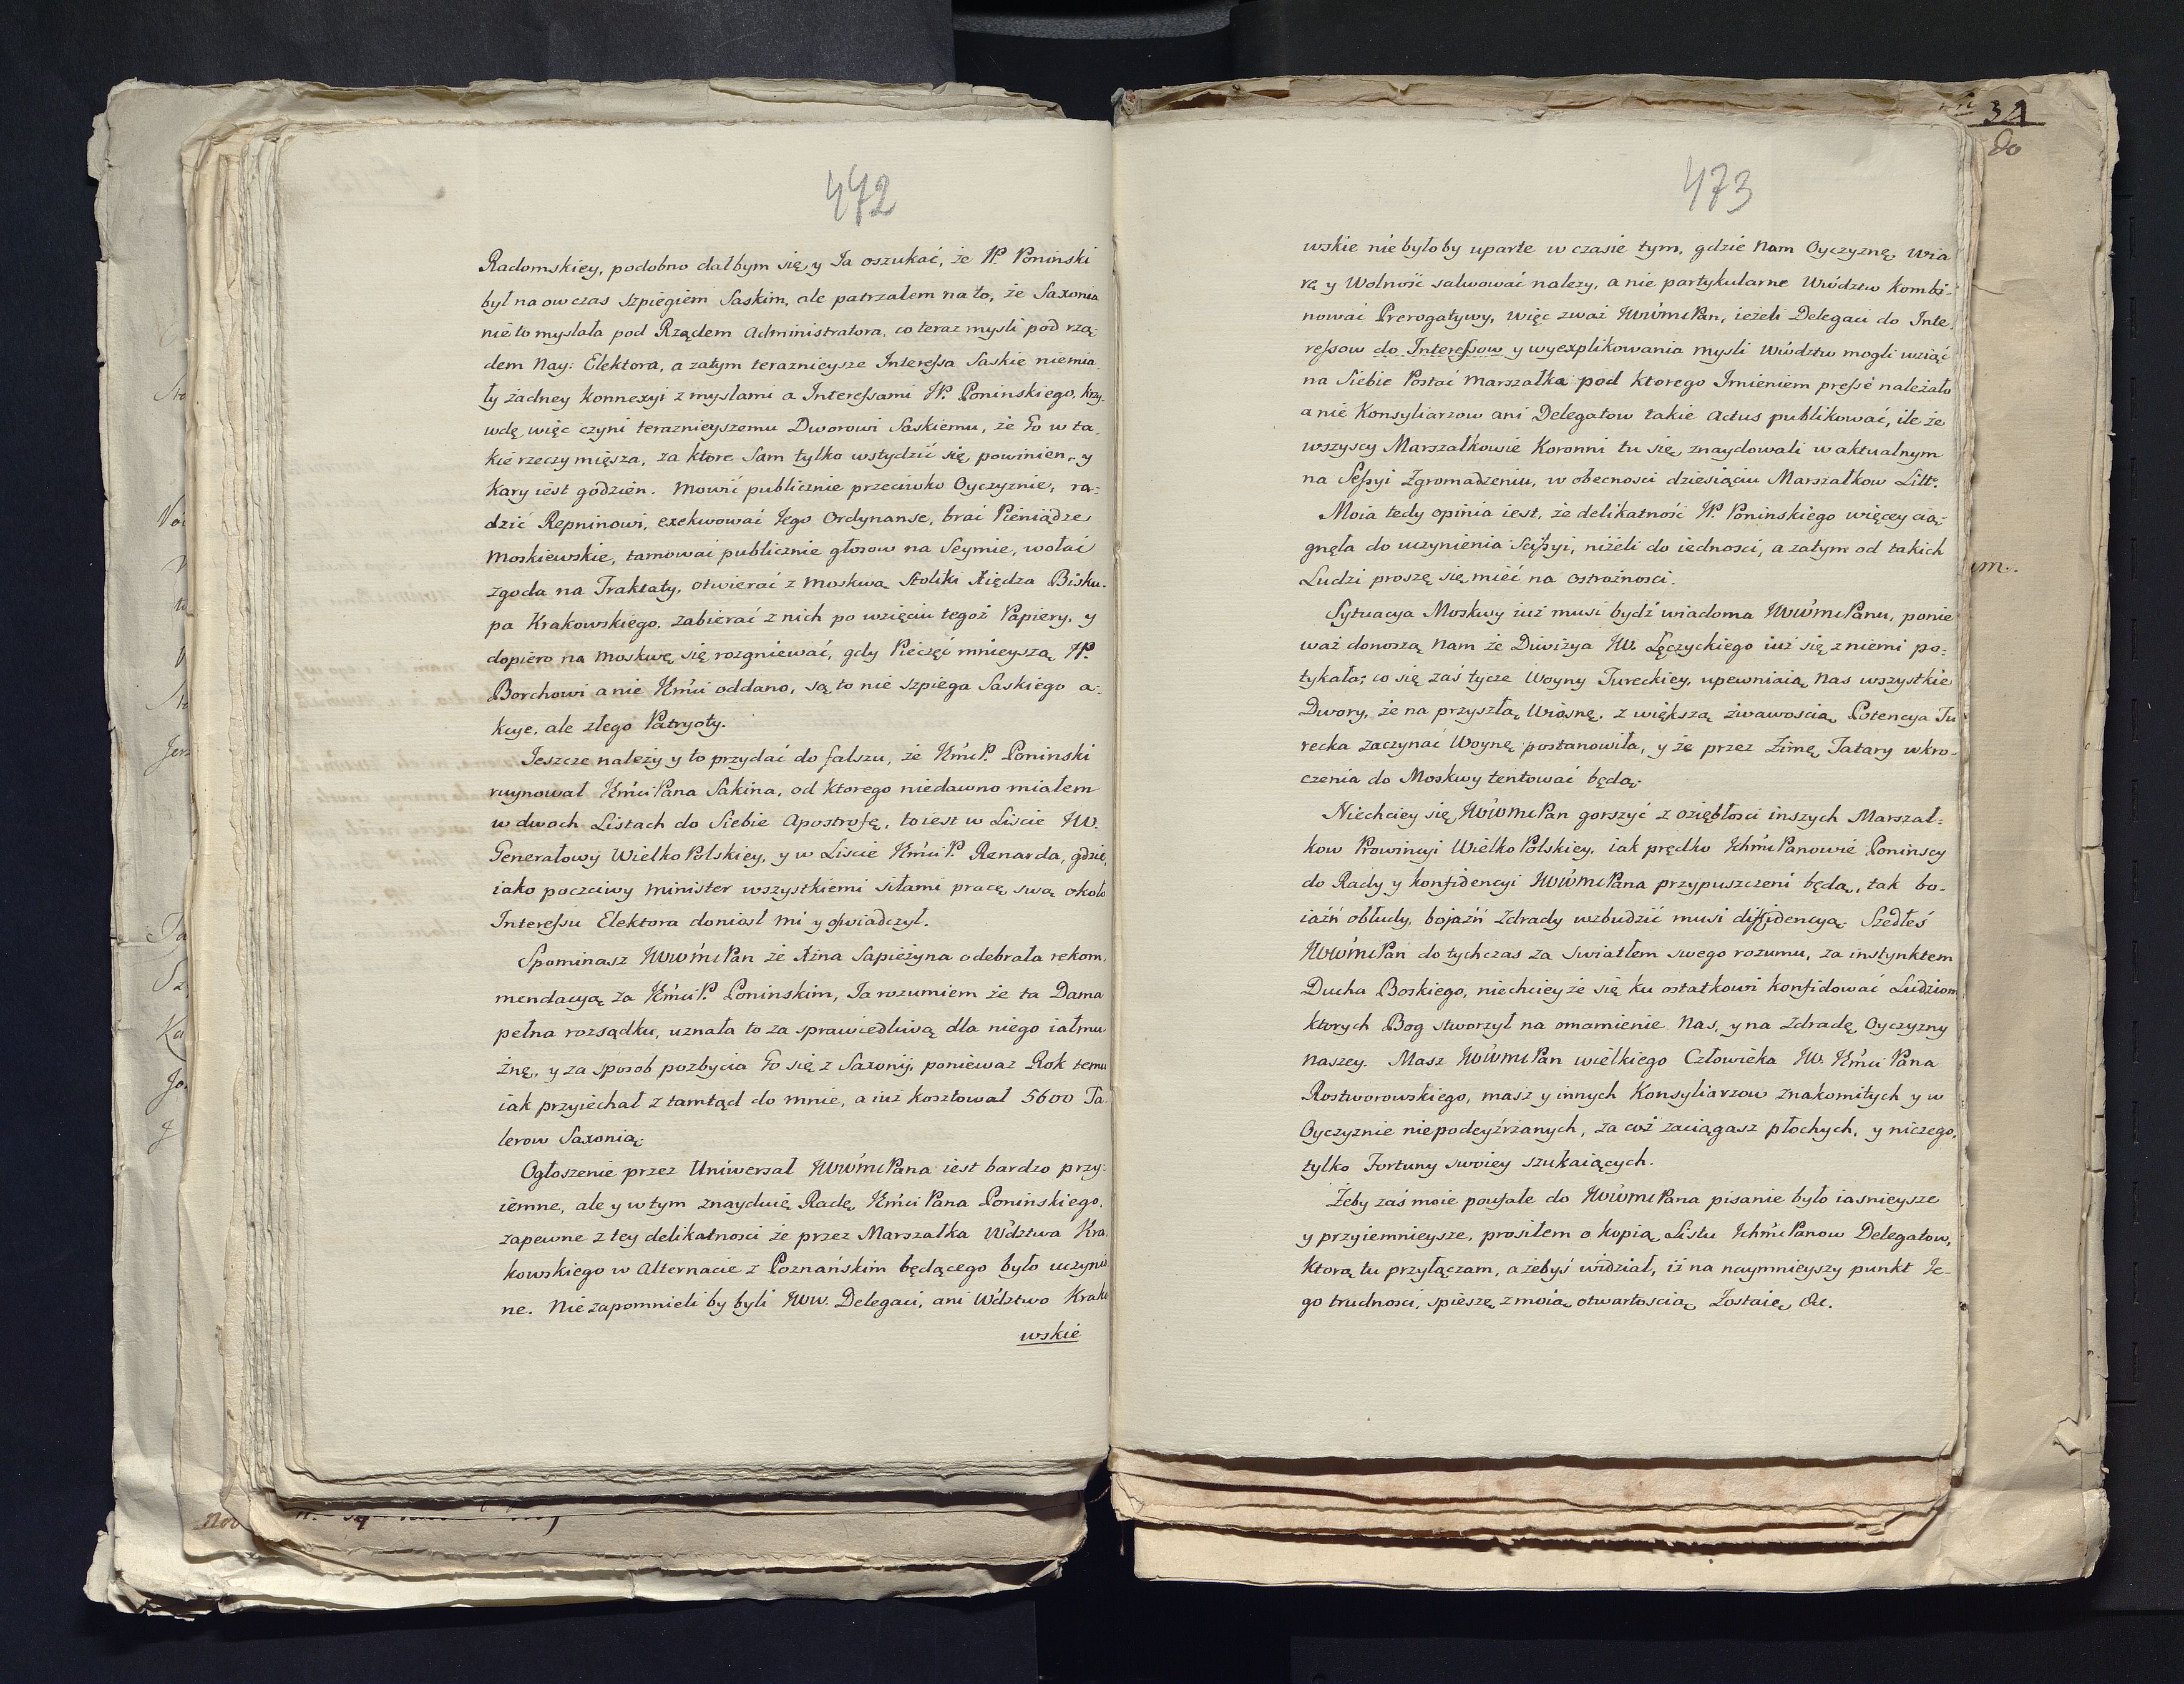 472
Radomskiey, podobno dałbym się y Ja oszukać, że W. Poninski
był na owczas Szpiegiem Saskim, ale patrzałem na to, że Saxonia
nie to myslała pod Rządem Administratora, co teraz mysli pod rzą-
dem Nay: Elektora, a zatym teraznieysze Interessa Saskie niemia
ły żadney Konnexyi z myslami a Interessami W. Poninskiego, krzy-
wdę więc czyni teraznieyszemu Dworowi Saskiemu, że Go w ta-
kie rzeczy mięsza, za ktore Sam tylko wstydzić się powinien, y
Kary iest godzien. Mowić publicznie przeciwko Oyczyznie, ra-
dzić Repninowi, exekwować Jego Ordynanse, brać Pieniądze
Moskiewskie, tamować publicznie głosow na Seymie, wołać
zgoda na Traktaty, otwierać z Moskwą Stoliki Xiędza Bisku-
pa Krakowskiego, zabierać z nich po wzięciu tegoż Papiery, y
dopiero na Moskwę się rozgniewać, gdy Pieczęć mnieyszą W.
Borchowi a nie Jmći oddano, są to nie szpiega Saskiego a-
kcye, ale złego Patryoty.
Jeszcze należy y to przydać do falszu, że JmćP. Poninski
ruynował Jmći Pana Sakina, od ktorego niedawno miałem
w dwoch Listach do Siebie Apostrofę, to iest w Liscie JW.
Generałowy Wielko Polskiey, y w Liscie Jmći P. Renarda, gdzie
iako poczciwy Minister wszystkiemi siłami pracę swą około
Interessu Elektora doniosł mi y oswiadczył.
Spominasz JWWmć Pan że Xżna Sapieżyna odebrała rekom-
mendacyą za Jmći P. Poninskim, Ja rozumiem że ta Dama
pełna rozsądku, uznała to za sprawiedliwą dla niego iałmu-
żnę, y za sposob pozbycia Go się z Saxonij, ponieważ Rok temu
iak przyiechał z tamtąd do mnie, a iuż kosztował 5600 Ta-
lerow Saxonią.
Ogłoszenie przez Uniwersał JWWmć Pana iest bardzo przy-
iemne, ale y w tym znayduię Radę Jmći Pana Poninskiego,
zapewne z tey delikatnosci że przez Marszałka Wdztwa Kra-
kowskiego w Alternacie z Poznańskim będącego było uczynio
ne. Nie zapomnieli by byli JWW. Delegaci, ani Wdztwo Krako
wskie
473
wskie nie byłoby uparte w czasie tym, gdzie Nam Oyczyznę, Wia
rę y Wolność salwować nalezy, a nie partykularne Wództw kombi-
nować Prerogatywy, Więc zważ JWWmć Pan, ieżeli Delegaci do Inte-
ressow do Interessow y wyexplikowania mysli Wództw mogli wziąć
na Siebie Postać Marszałka pod ktorego Imieniem presse należało
a nie Konsyliarzow ani Delegatow takie Actus publikować, ile że
wszyscy Marszałkowie Koronni tu się znaydowali w aktualnym
na Sessyi Zgromadzeniu, w obecnosci dziesiąciu Marszałkow Litt.
Moia tedy opinia iest, że delikatność W. Poninskiego więcey cią-
gnęła do uczynienia Scissyi, niżeli do iednosci, a zatym od takich
Ludzi proszę się mieć na ostrożnosci.
Sytuacya Moskwy iuż musi bydź wiadoma JWWmć Panu, ponie
waż donoszą Nam że Diwizya JW. Lęczyckiego iuż się z niemi po-
tykała; co się zaś tycze Woyny Tureckiey, upewniaią Nas wszystkie
Dwory, że na przyszłą Wiosnę, z większą żwawoscią Potencya Tu
recka zaczynać Woynę postanowiła, y że przez Zimę Tatary wkro-
czenia do Moskwy tentować będą.
Niechciey się JWWmć Pan gorszyć z oziębłosci inszych Marszał-
kow Prowincyi Wielko Polskiey, iak prędko Ichmć Panowie Poninscy
do Rady y konfidencyi JWWmć Pana przypuszczeni będą, tak bo-
iaźń obłudy, bojaźń Zdrady wzbudzić musi diffidencyą. Szedłeś
JWWmć Pan do tychczas za Swiatłem swego rozumu, za instynktem
Ducha Boskiego, niechcieyże się ku ostatkowi konfidować Ludziom
ktorych Bog stworzył na omamienie Nas, y na Zdradę Oyczyzny
naszey. Masz JWWmć Pan wielkiego Człowieka JW. Jmći Pana
Rostworowskiego, masz y innych Konsyliarzow znakomitych y w
Oyczyznie niepodeyźrżanych, za coż zaciągasz płochych, y niczego,
tylko Fortuny swoiey szukaiących.
Żeby zaś moie poufałe do JWWmć Pana pisanie było iasnieysze
y przyiemnieysze, prosiłem o kopią Listu Ichmć Panow Delegatow,
Ktorą tu przyłączam, a żebyś widział, iż na naymnieyszy punkt Je-
go trudnosci, spieszę z moią otwartoscią Zostaię &c.